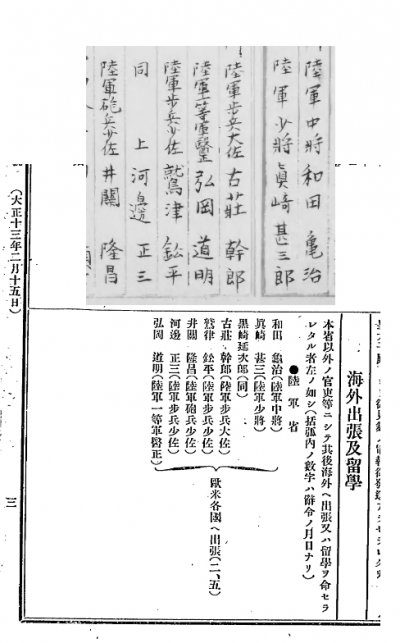 陸軍中將和田亀治
陸軍少將眞崎甚三郎
陸軍歩兵大佐古莊幹郎
陸軍一等軍醫正弘岡道明
陸軍歩兵少佐鷲津鈆平
同 上河邊正三
陸軍砲兵少佐井關隆昌
海外出張及留學
本省以外ノ官吏等ニシテ其後海外ヘ出張又ハ留學ヲ命セラ
レタル者左ノ如シ(括弧内ノ數字ハ辭令ノ月日ナリ)
●陸軍省
和田 龜治(陸軍中將)
眞崎 甚三(陸軍少將)
黑崎延次郎(同)
古莊 幹郎(陸軍歩兵大佐)
鷲津 鈆平(陸軍歩兵少佐)
井關 隆昌(陸軍砲兵少佐)
河邊 正三(陸軍歩兵少佐)
弘岡 道明(陸軍一等軍醫正)
歐米各國ヘ出張(二、五)
(大正十三年二月十五日)
三